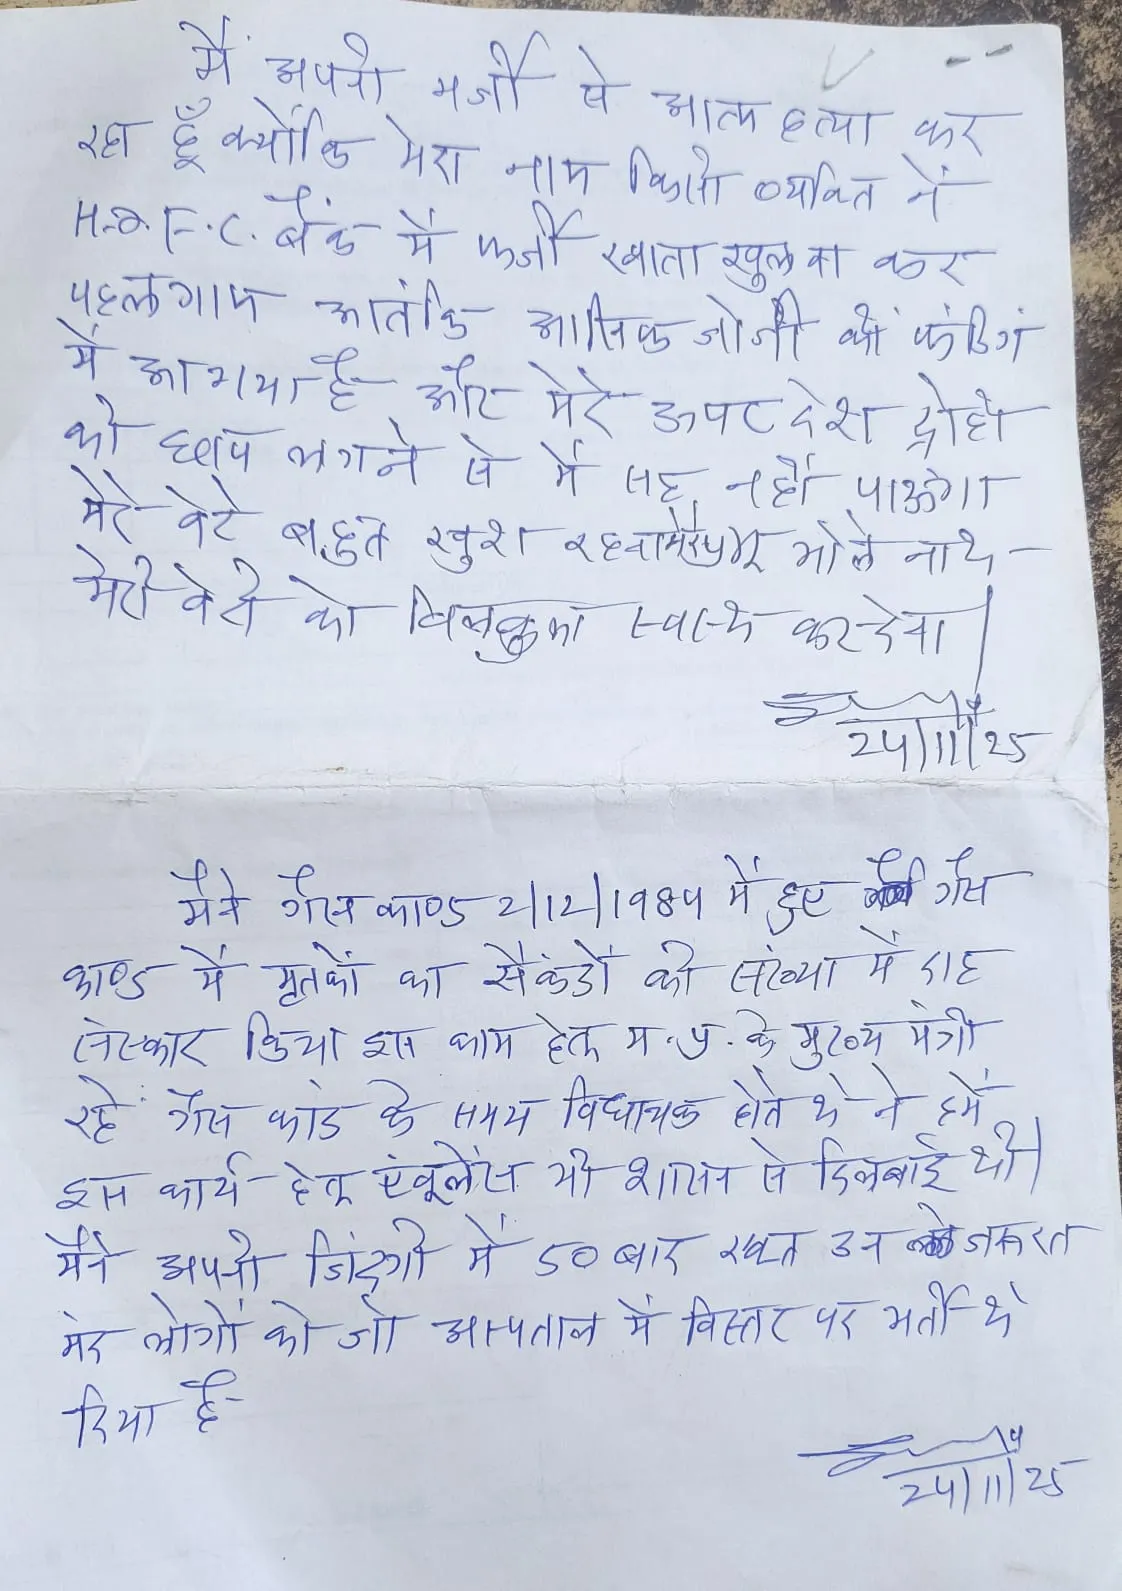 मैं अपनी मर्जी से आत्म हत्या कर
रहा हूँ क्योंकि मेरा नाम किसी व्यक्ति नें
H.D.F.C. बैंक में फर्जी खाता खुलवा कर
पहलगाम आतंकि आसिफ जोजी की फंडिगं
में आ गया है और मेरे ऊपर देश द्रोही
की छाप लगने से में सह नहीं पाऊंगा
मेरे बेटे बहुत खुश रहना भोले नाथ
मेरी बेटी को बिलकुल स्वस्थ कर देना।
24/11/25
मैंने गैस काण्ड 2/12/1984 में हुए गैस
काण्ड में मृतकों का सैकंडों की संख्या में दाह
संस्कार किया इस काम हेतु म.प्र. के मुख्य मंत्री
रहे गैस कांड के समय विधायक होते थे ने हमें
इस कार्य हेतु एंबूलेंस भी शासन से दिलबाई थी।
मैंने अपनी जिंदगी में 50 बार रक्त उन जरूरत
मंद लोगों को जो अस्पताल में विस्तर पर भर्ती थे
दिया है
24/11/25